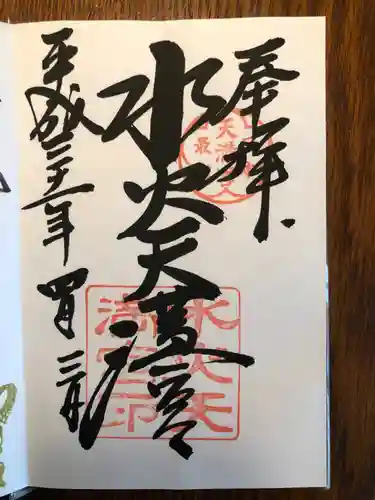 奉拝
水火天満宮
平成三十一年 四月 三日
天満
最
水火天
満宮印